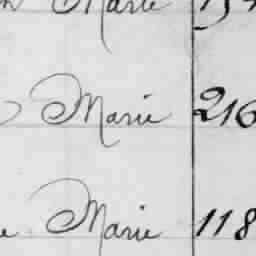 Marie
Marie 216
Marie 118